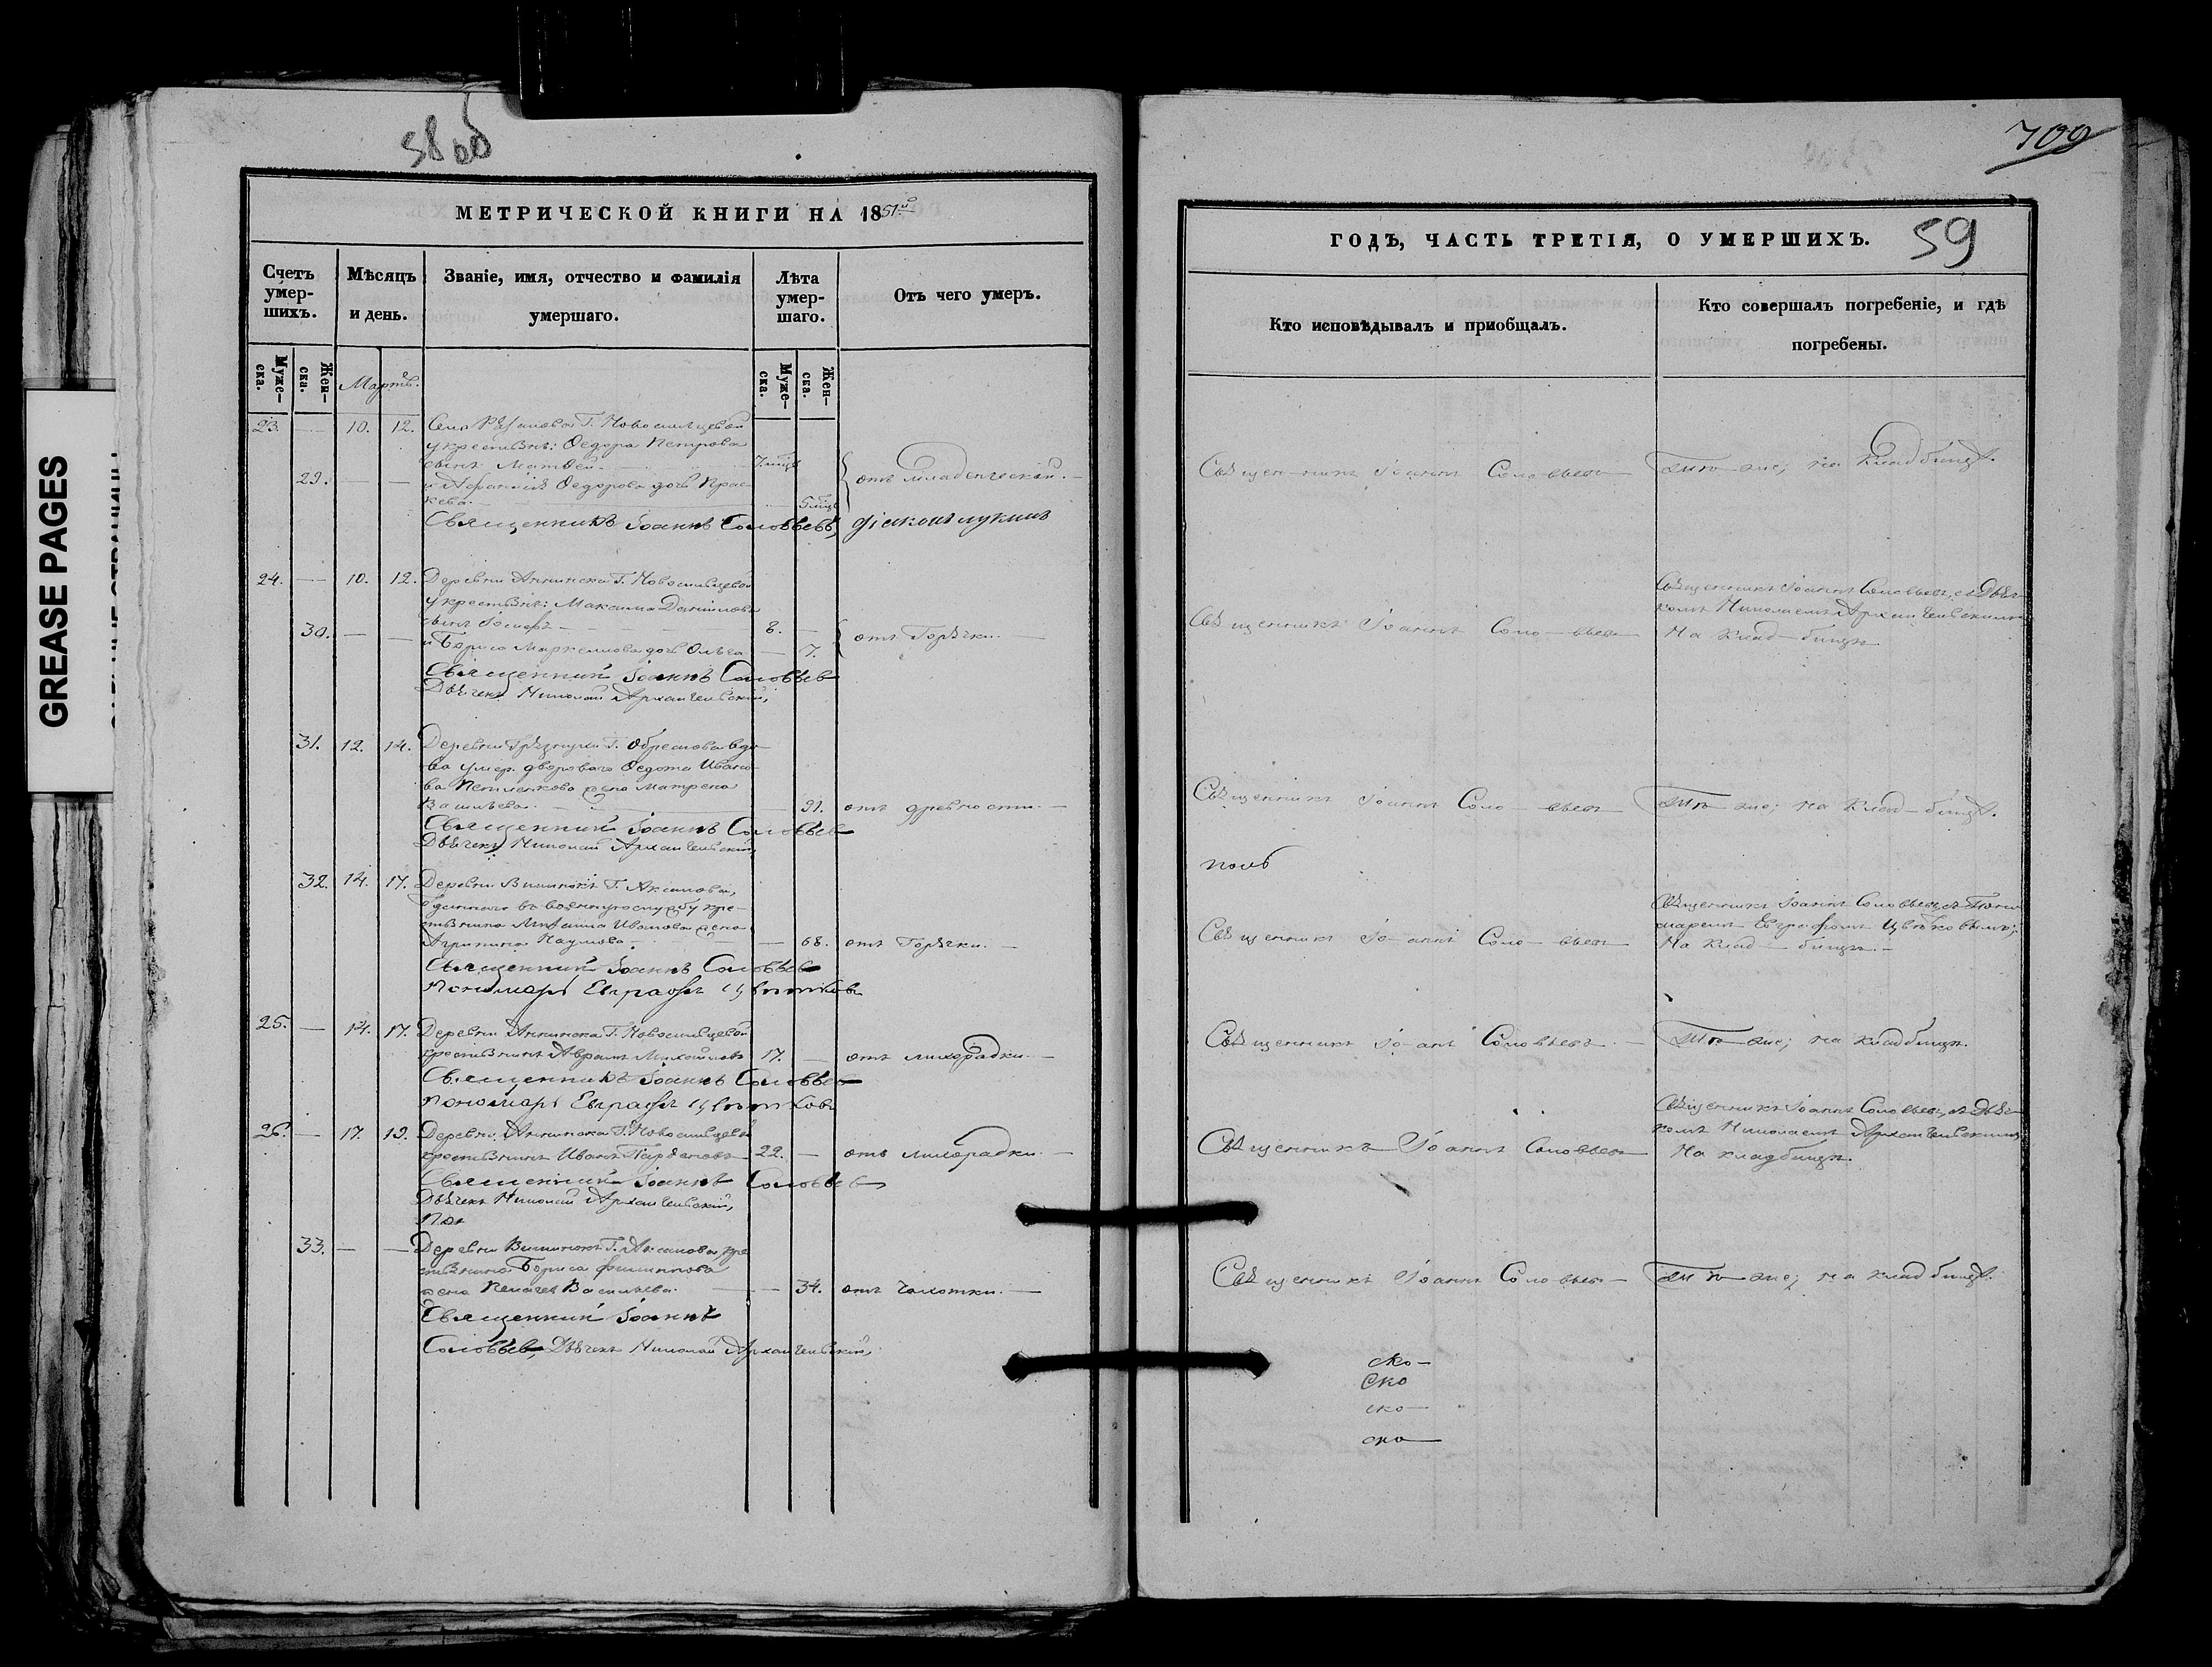 58 об
МЕТРИЧЕСКОЙ КНИГИ НА 1851й
Счетъ умер-шихъ.
Мѣсяцъ и день.
Званіе, имя, отчество и фамилія умершаго.
Лѣта умер-шаго.
Отъ чего умеръ.
Муже-ска.
Жен-ска.
Мартъ.
Муже-ска.
Жен-ска.
23. — 10. 12. Села Г. Новосильцевой
у крестьянъ: Ѳедора Петрова
сынъ Матвей. 7 мцъ
29. — — и Ѳедорова дочь Прас-
кева. 5 мцъ
отъ младенческой.
Священникъ Іоаннъ Соловьевъ, діаконъ Лукинъ
24. — 10. 12. Деревни Аннинска Г. Новосильцевой
у крестьянъ: Максима Данилова
сынъ Іосифъ 8. —
30. — — и Бориса Маркелова дочь Ольга — 7.
отъ Горячки.
Священникъ Іоаннъ Соловьев
Дьячекъ Николай Архангельскій,
31. 12. 14. Деревни Г. вдо-
ва умер. двороваго Ѳедота Ивано-
ва жена Матрена
Васильева. — 91. отъ древности.
Священникъ Іоаннъ Соловьев
Дьячекъ Николай Архангельскій,
32. 14. 17. Деревни Г. Аксакова,
отданнаго въ военную службу кре-
стьянина Иванова жена
Агрипина Наумова. — 68. отъ Горячки.
Священникъ Іоаннъ Соловьев
Пономарь Евграфъ Цвѣтковъ
25. — 14. 17. Деревни Аннинска Г. Новосильцевой
крестьянинъ Авраамъ Михайловъ 17. — отъ лихорадки.
Священникъ Іоаннъ Соловьев
Пономарь Евграфъ Цвѣтковъ
26. — 17. 19. Деревни Аннинска Г. Новосильцевой
крестьянинъ Иванъ 22. — отъ лихорадки.
Священникъ Іоаннъ Соловьев
Дьячекъ Николай Архангельскій,
Пон
33. — — Деревни Г. Аксакова, кре
стьянина Бориса Филиппова
жена Пелагея Васильева. — 34. отъ чахотки.
Священникъ Іоаннъ
Соловьев, Дьячекъ Николай Архангельскій,
709
ГОДЪ, ЧАСТЬ ТРЕТІЯ, О УМЕРШИХЪ.
59
Кто исповѣдывалъ и приобщалъ.
Кто совершалъ погребеніе, и гдѣ погребены.
Священникъ Іоаннъ Соловьевъ
Тѣ же; на Кладбищѣ.
Священникъ Іоаннъ Соловьевъ
Священникъ Іоаннъ Соловьевъ, съ Дьяч-
комъ Николаемъ Архангельскимъ
На Кладбищѣ
Священникъ Іоаннъ Соловьевъ
Тѣ же; на Кладбищѣ.
Священникъ Іоаннъ Соловьевъ
Священникъ Іоаннъ Соловьевъ, съ Поно-
маремъ Евграфомъ Цвѣтковымъ;
На Кладбищѣ.
Священникъ Іоанъ Соловьевъ
Тѣ же; на кладбищѣ.
Священникъ Іоаннъ Соловьевъ
Священникъ Іоаннъ Соловьевъ, съ Дьяч-
комъ Николаемъ Архангельскимъ
На кладбищѣ.
Священникъ Іоаннъ Соловьевъ
Тѣ же; на кладбищѣ.
ско
ско
ско
ско
GREASE PAGES